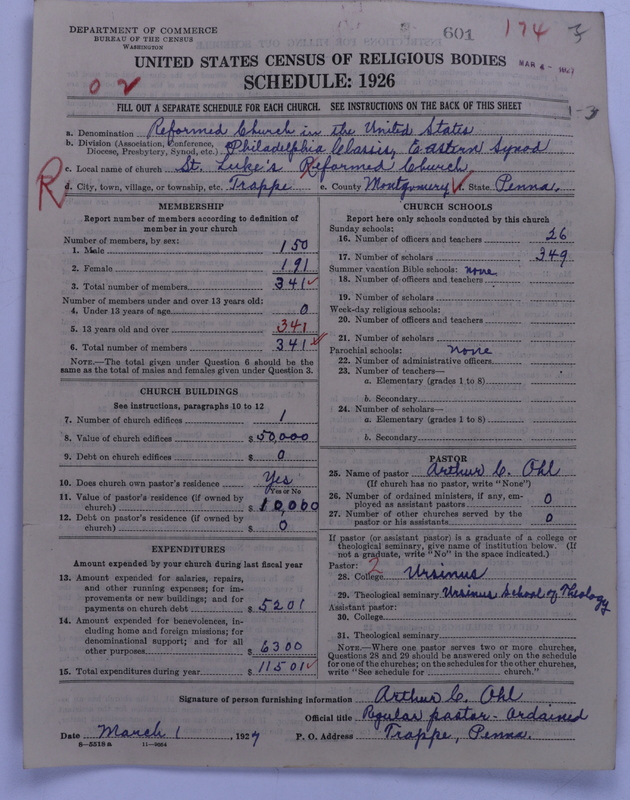 DEPARTMENT OF COMMERCE
BUREAU OF THE CENSUS
WASHINGTON
601
174
MAR 4 - 1927
UNITED STATES CENSUS OF RELIGIOUS BODIES
SCHEDULE: 1926
FILL OUT A SEPARATE SCHEDULE FOR EACH CHURCH. SEE INSTRUCTIONS ON THE BACK OF THIS SHEET
a. Denomination Reformed Church in the United States
b. Division (Association, Conference, Diocese, Presbytery, Synod, etc.) Philadelphia Classis, Eastern Synod
c. Local name of church St. Luke's Reformed Church
R
d. City, town, village, or township, etc. Trappe e. County Montgomery f. State Penna.
MEMBERSHIP
Report number of members according to definition of
member in your church
Number of members, by sex:
1. Male 150
2. Female 191
3. Total number of members 341
Number of members under and over 13 years old:
4. Under 13 years of age 0
5. 13 years old and over 341
6. Total number of members 341
NOTE.—The total given under Question 6 should be
same as the total of males and females given under Question 3.
CHURCH BUILDINGS
See instructions, paragraphs 10 to 12
7. Number of church edifices 1
8. Value of church edifices $ 50,000
9. Debt on church edifices $ 0
10. Does church own pastor's residence Yes
Yes or No
11. Value of pastor's residence (if owned by
church) $ 10,000
12. Debt on pastor's residence (if owned by
church) $ 0
EXPENDITURES
Amount expended by your church during last fiscal year
13. Amount expended for salaries, repairs,
and other running expenses; for im-
provements or new buildings; and for
payments on church debt $ 5201
14. Amount expended for benevolences, in-
cluding home and foreign missions; for
denominational support; and for all
other purposes $ 6300
15. Total expenditures during year $ 11501
CHURCH SCHOOLS
Report here only schools conducted by this church
Sunday schools:
16. Number of officers and teachers 26
17. Number of scholars 349
Summer vacation Bible schools: none
18. Number of officers and teachers
19. Number of scholars
Week-day religious schools:
20. Number of officers and teachers
21. Number of scholars
Parochial schools: none
22. Number of administrative officers
23. Number of teachers—
a. Elementary (grades 1 to 8)
b. Secondary
24. Number of scholars—
a. Elementary (grades 1 to 8)
b. Secondary
PASTOR
25. Name of pastor Arthur C. Ohl
(If church has no pastor, write "None")
26. Number of ordained ministers, if any, em-
ployed as assistant pastors 0
27. Number of other churches served by the
pastor or his assistants 0
If pastor (or assistant pastor) is a graduate of a college or
theological seminary, give name of institution below. (If
not a graduate, write "No" in the space indicated.)
Pastor: 2
28. College Ursinus
29. Theological seminary Ursinus School of Theology
Assistant pastor:
30. College
31. Theological seminary
NOTE.—Where one pastor serves two or more churches,
Questions 28 and 29 should be answered only on the schedule
for one of the churches; on the schedules for the other churches,
write "See schedule for church."
Signature of person furnishing information Arthur C. Ohl
Official title Regular pastor - Ordained
Date March 1, 1927 P. O. Address Trappe, Penna.
8—5518a 11—9064